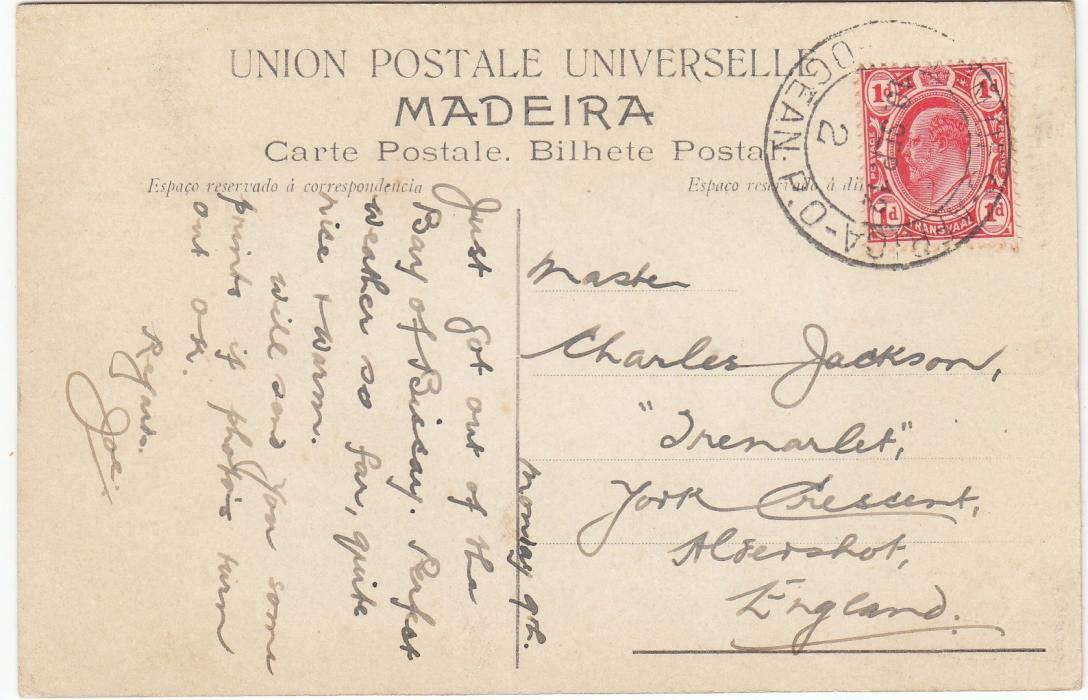 UNION POSTALE UNIVERSELLE
MADEIRA
Carte Postale. Bilhete Postal.
Espaço reservado á correspondencia
Espaço reservado á di
1d 1d
POSTAGE REVENUE
1d 1d
TRANSVAAL
OCEAN. P.O.
2
SEP 12
Monday 9th.
Just got out of the
Bay of Biscay. Perfect
weather so far, quite
nice & warm.
will send you some
prints if photos turn
out ok.
Regards.
Joe.
Master
Charles Jackson,
"Trenarlet",
York Crescent,
Aldershot,
England.